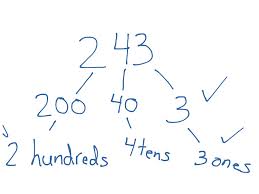 243
200 40 3
2 hundreds 4 tens 3 ones